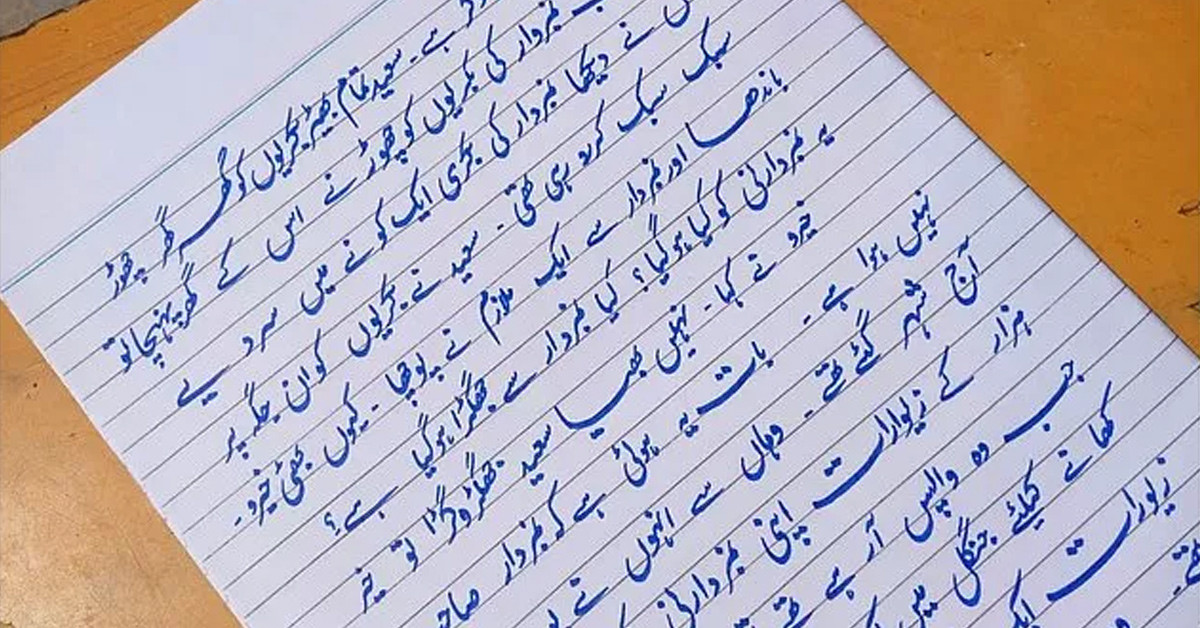 ہے۔ سعید تمام بھیڑ بکریوں کو گھر گھر چھوڑ
نمبردار کی بکریوں کو چھوڑنے اس کے گھر پہنچا تو
نے دیکھا نمبردار کی بکری ایک کونے میں سر دیے
سبک سبک کر رو رہی تھی۔ سعید نے بکریوں کو ان جگہ پر
باندھا اور نمبردار سے ایک ملازم نے پوچھا۔ کیوں بھئی خیرو۔
یہ نمبردارنی کو کیا ہو گیا؟ کیا نمبردار سے جھگڑا ہو گیا ہے؟
خیرو نے کہا۔ نہیں بھیا سعید جھگڑ وگڑا تو خیر
نہیں ہوا ہے۔ بات یہ ہوئی ہے کہ نمبردار
آج شہر گئے تھے۔ وہاں سے انہوں نے
ہزار کے زیوارات اپنی نمبردارنی
جب وہ واپس آ رہے تھے
کھانے کیلئے جنگل میں
زیوارات